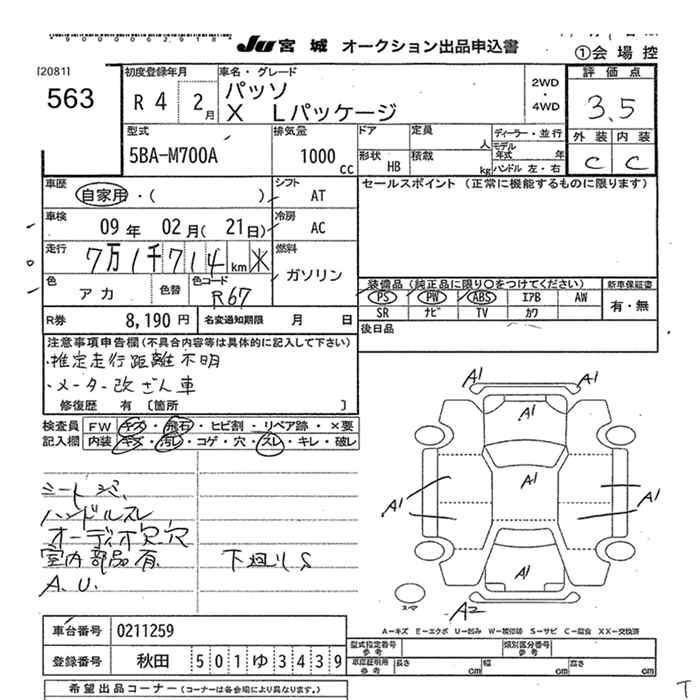 JU 宮城 オークション出品申込書
①会場控
[2081]
563
初度登録年月
R4 2月
車名・グレード
パッソ
X Lパッケージ
2WD
・
4WD
評価点
3.5
外装 内装
C C
型式
5BA-M700A
排気量
1000 cc
ドア
定員
人
ディーラー・並行
モデル年式 年
形状
HB
積載
kg
ハンドル 左・右
車歴
自家用・( )
シフト
AT
セールスポイント(正常に機能するものに限ります)
車検
09年 02月(21日)
冷房
AC
走行
7万1千714km ※
燃料
ガソリン
色
アカ
色替
色コード
R67
装備品(純正品に限り○をつけてください)
新車保証書
PS PW ABS エアB AW
SR ナビ TV カワ
有・無
R券
8,190円
名変通知期限 月 日
後日品
注意事項申告欄(不具合内容等は具体的に記入して下さい)
・推定走行距離不明
・メーター改ざん車
修復歴 有 [箇所 ]
検査員記入欄
FW キズ・飛石・ヒビ割・リペア跡・×要
内装 キズ・汚れ・コゲ・穴・スレ・キレ・破レ
シートシミ、
ハンドルスレ
オーディオ欠、穴
室内部品有、
A.U.
下廻りS
A1
A1
A1
A1
A1
A1
A1
A2
スマ
A-キズ E-エクボ U-凹み W-補修跡 S-サビ C-腐食 XX-交換済
車台番号
0211259
登録番号
秋田 501ゆ3439
型式指定番号参考
類別区分番号参考
車庫証明用参考
長さ cm 幅 cm 高さ cm
希望出品コーナー(コーナーは各会場により異なります。)